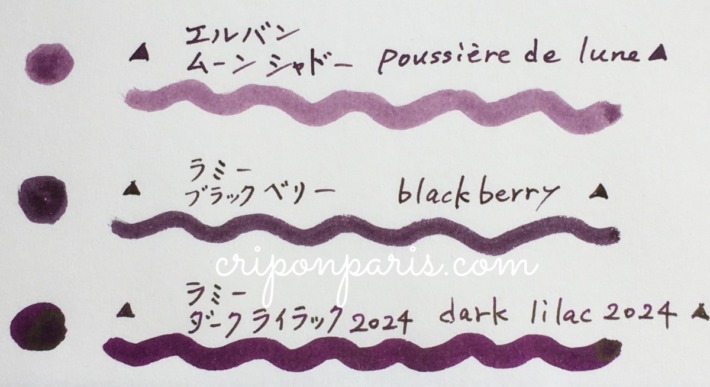 エルバン
ムーン シャドー poussière de lune
ラミー
ブラックベリー blackberry
criponparis.com
ラミー
ダークライラック2024 dark lilac 2024